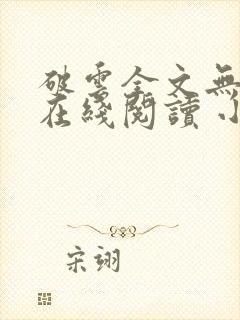 破雲全文無
在綫閱讀 小
宋翊